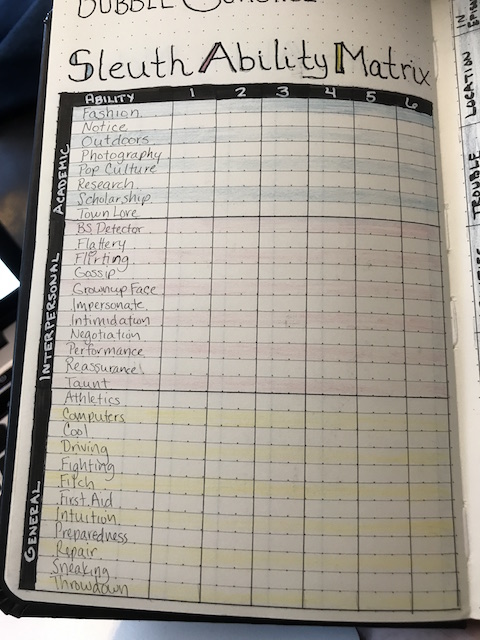 Sleuth Ability Matrix
ABILITY 1 2 3 4 5 6
ACADEMIC
Fashion
Notice
Outdoors
Photography
Pop Culture
Research
Scholarship
Town Lore
INTERPERSONAL
BS Detector
Flattery
Flirting
Gossip
Grownup Face
Impersonate
Intimidation
Negotiation
Performance
Reassurance
Taunt
GENERAL
Athletics
Computers
Cool
Driving
Fighting
Filch
First Aid
Intuition
Preparedness
Repair
Sneaking
Throwdown
IN
LOCATION
TROUBLE